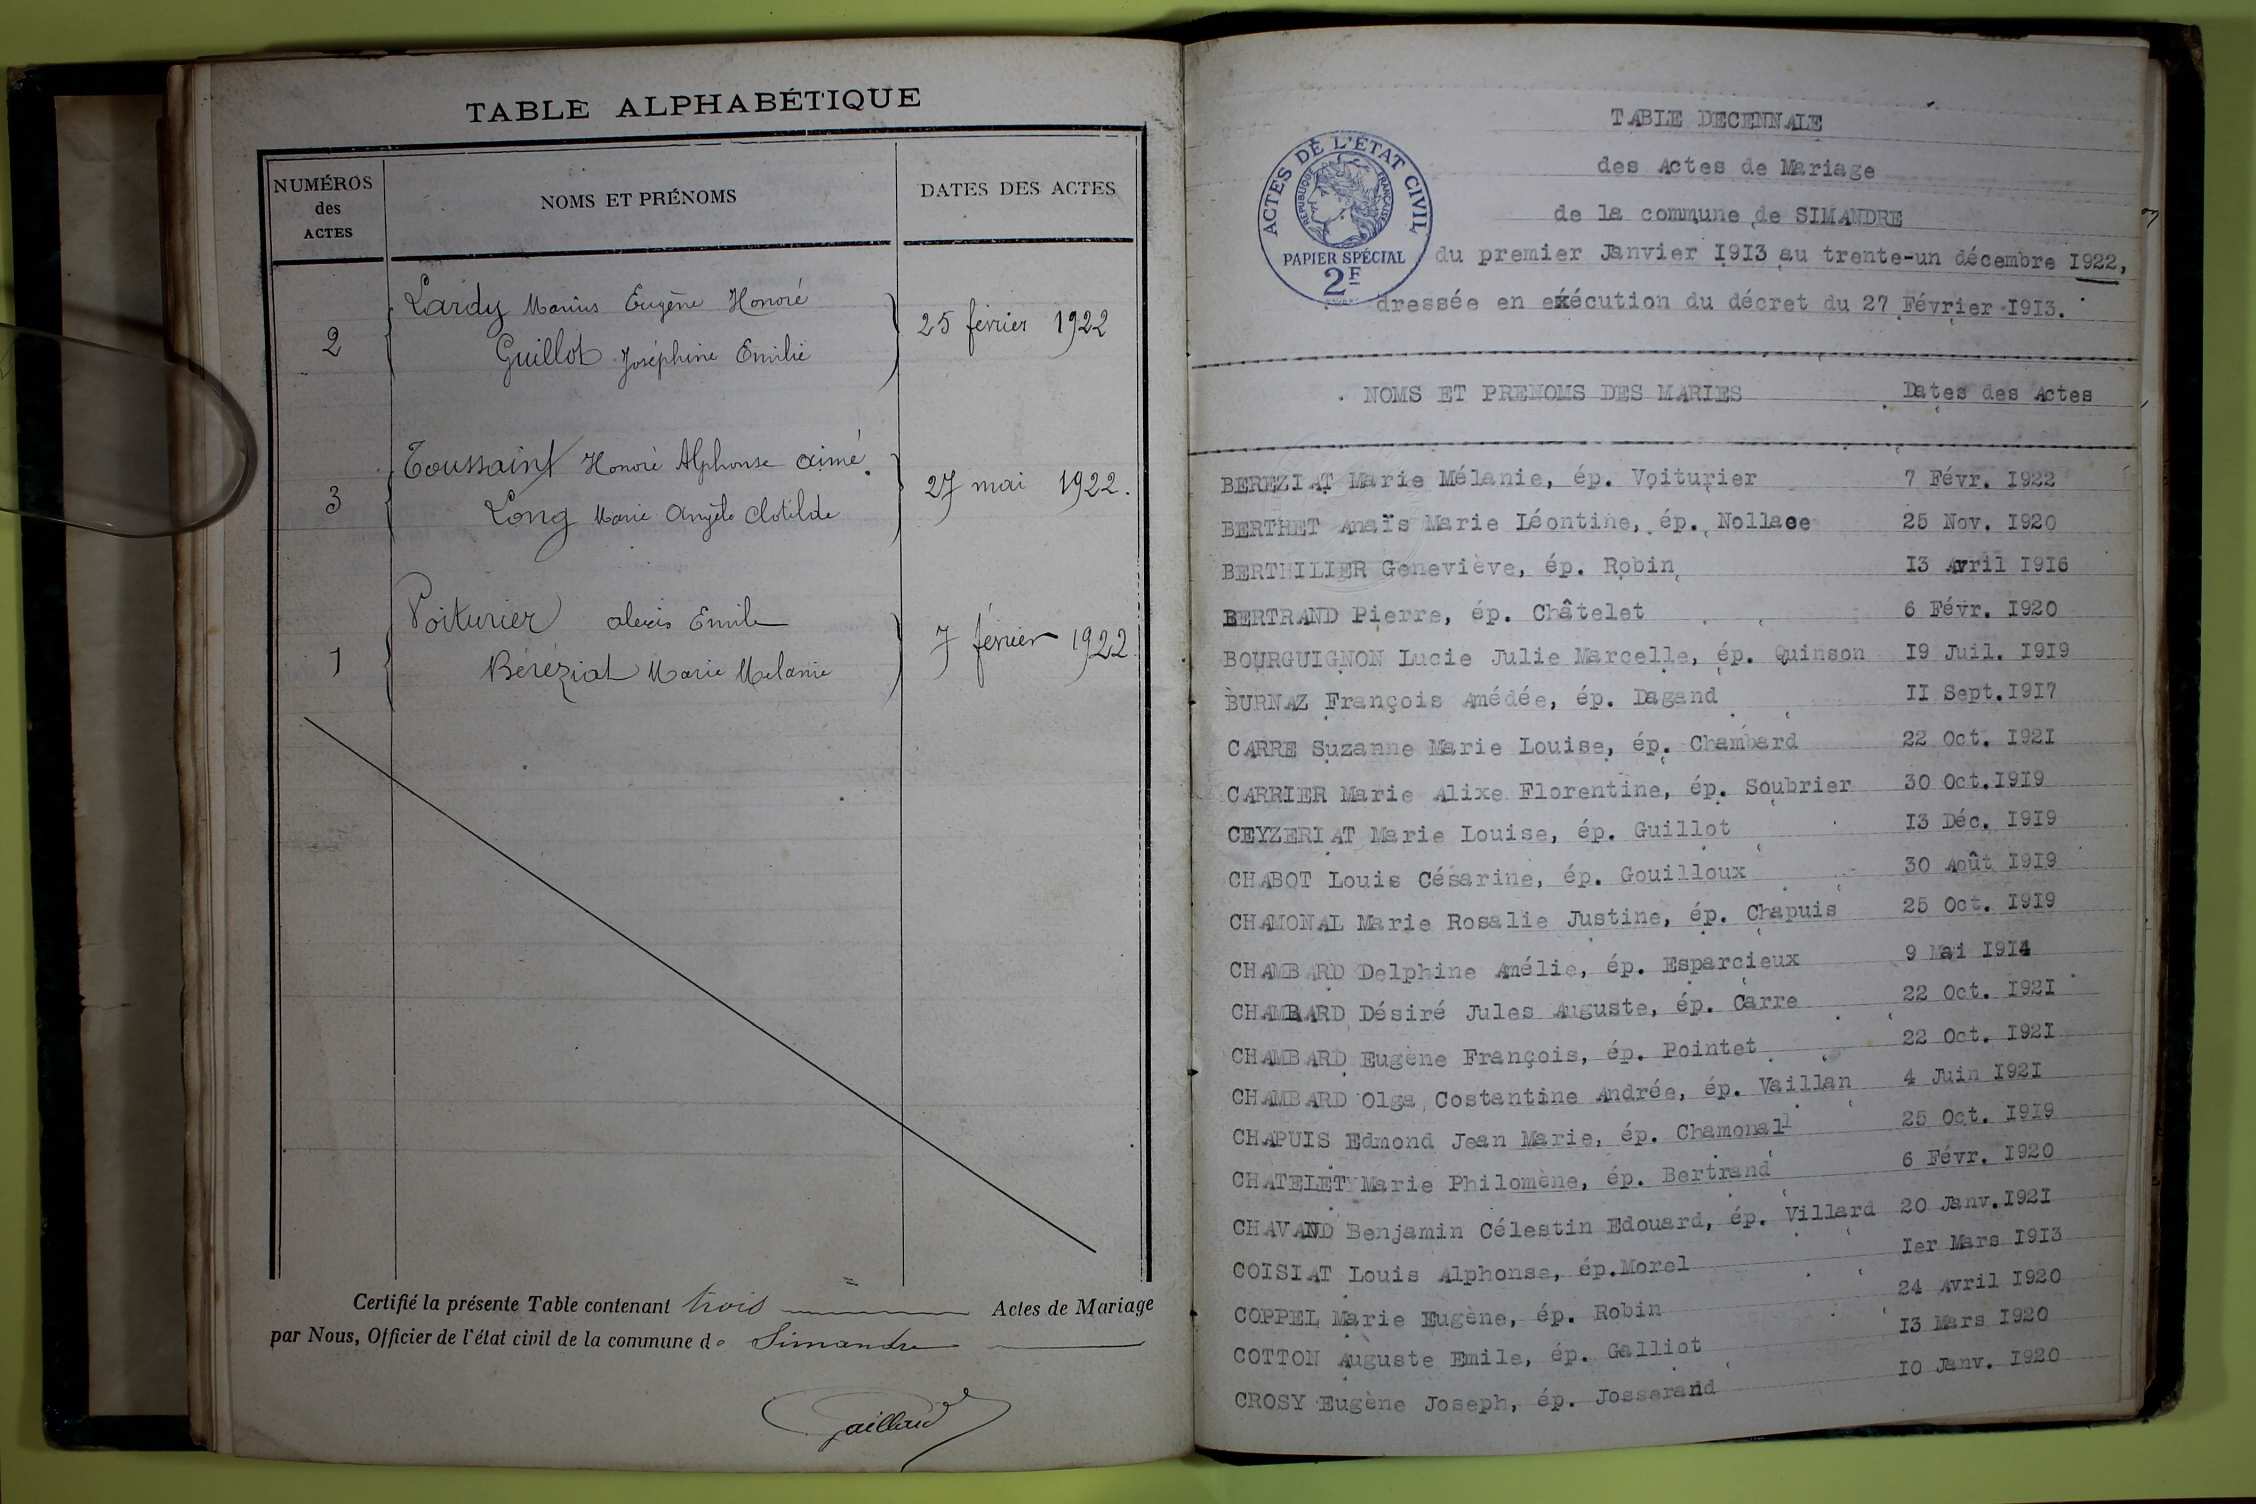 TABLE ALPHABÉTIQUE
NUMÉROS
des
ACTES
NOMS ET PRÉNOMS
DATES DES ACTES
Lardy Marius Eugène Honoré
2
25 février 1922
Guillot Joséphine Emilie
Toussaint Honoré Alphonse Aimé.
3
27 mai 1922.
Long Marie Angèle Clotilde
Voiturier Alexis Emile
1
7 février 1922
Béréziat Marie Melanie
Certifié la présente Table contenant trois Actes de Mariage
par Nous, Officier de l'état civil de la commune de Simandre
Gaillard
TABLE DECENNALE
des Actes de Mariage
de la commune de SIMANDRE
du premier Janvier I9I3 au trente-un décembre I922,
dressée en exécution du décret du 27 Février I9I3.
ACTES DE L'ÉTAT CIVIL
RÉPUBLIQUE FRANÇAISE
PAPIER SPÉCIAL
2F
NOMS ET PRENOMS DES MARIES Dates des Actes
BEREZIAT Marie Mélanie, ép. Voiturier 7 Févr. I922
BERTHET Anaïs Marie Léontine, ép. Nollaee 25 Nov. I920
BERTHILIER Geneviève, ép. Robin I3 Avril I9I6
BERTRAND Pierre, ép. Châtelet 6 Févr. I920
BOURGUIGNON Lucie Julie Marcelle, ép. Quinson I9 Juil. I9I9
BURNAZ François Amédée, ép. Dagand II Sept.I9I7
CARRE Suzanne Marie Louise, ép. Chambard 22 Oct. I92I
CARRIER Marie Alixe Florentine, ép. Soubrier 30 Oct.I9I9
CEYZERIAT Marie Louise, ép. Guillot I3 Déc. I9I9
CHABOT Louis Césarine, ép. Gouilloux 30 Août I9I9
CHAMONAL Marie Rosalie Justine, ép. Chapuis 25 Oct. I9I9
CHAMBARD Delphine Amélie, ép. Esparcieux 9 Mai I9I4
CHAMBARD Désiré Jules Auguste, ép. Carre 22 Oct. I92I
CHAMBARD Eugène François, ép. Pointet 22 Oct. I92I
CHAMBARD Olga Costantine Andrée, ép. Vaillan 4 Juin I92I
CHAPUIS Edmond Jean Marie, ép. Chamonal 25 Oct. I9I9
CHATELET Marie Philomène, ép. Bertrand 6 Févr. I920
CHAVAND Benjamin Célestin Edouard, ép. Villard 20 Janv.I92I
COISIAT Louis Alphonse, ép.Morel Ier Mars I9I3
COPPEL Marie Eugène, ép. Robin 24 Avril I920
COTTON Auguste Emile, ép. Galliot I3 Mars I920
CROSY Eugène Joseph, ép. Josserand IO Janv. I920